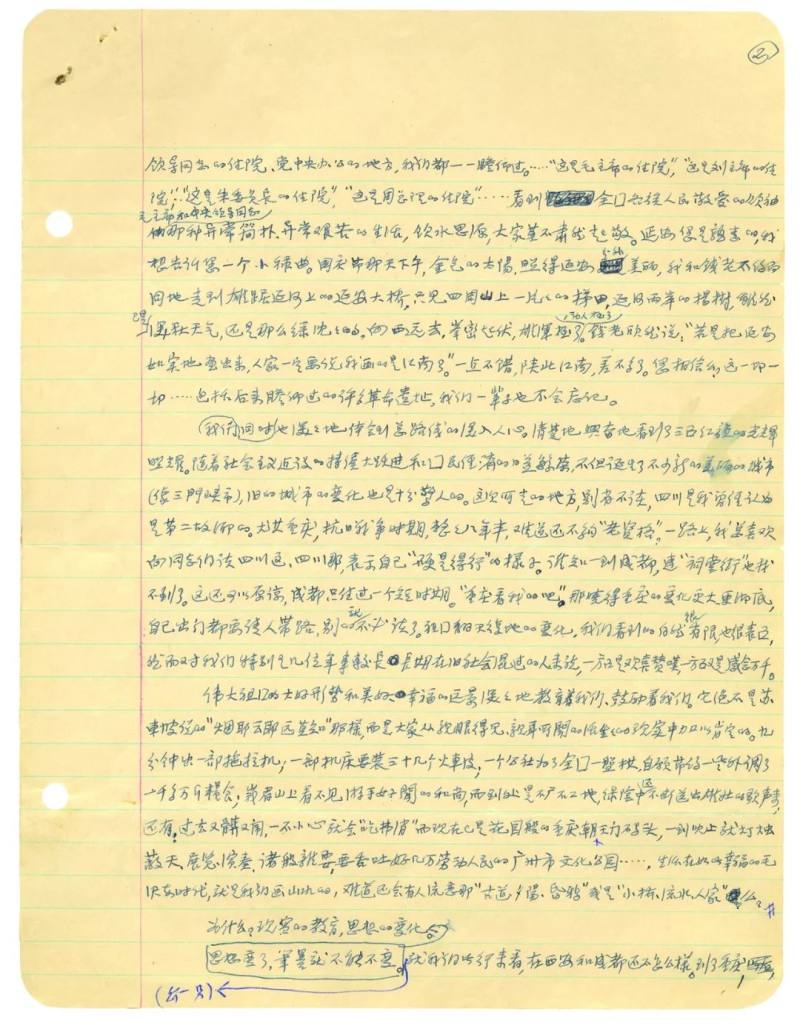 ②
领导同志的住院、党中央办公的地方，我们都一一瞻仰过。……"这是毛主席的住院"，"这是刘主席的住
院"，"这是朱委员长的住院"，"这是周总理的住院"……看到 全国各族人民敬爱的领袖
毛主席和中央领导同志
那种异常简朴、异常艰苦的生活，饮水思源，大家莫不肃然起敬。延安
想告诉您一个小插曲。国庆节那天下午，金色的太阳，照得延安 美丽，我和钱老不约而
同地走到雄踞延河上的延安大桥，只见四周山上一片片的梯田，延河两岸的杨树，虽然
已是
深秋天气，还是那么绿沈沈的。向西远去，峯峦起伏， 钱老欣然说："若是把延安
如实地画出来，人家一定要说我画的是江南了。"一点不错，陕北江南，差不多了。您相信么，这一切一
切……包括后来瞻仰过的许多革命遗址，我们一辈子也不会忘记。
我们同时也深深地体会到总路线的深入人心。清楚地兴奋地看到了三面红旗的光辉
照耀。随着社会主义建设的持续大跃进和国民经济的日益繁荣，不但诞生了不少新的美丽的城市
(像三门峡市)，旧的城市的变化也是十分惊人的。这次所走的地方，别省不谈，四川是我曾经认为
是第二故乡的。尤其重庆，抗日战争时期，整整八年半，难道还不够"老资格"？一路上，我总喜欢
向同志们谈四川这、四川那，表示自己"硬是得行"的样子。谁知一到成都，连"祠堂街"也找
不到了。这还可以原谅，成都只住过一个短时期。"重庆看我的吧"。那晓得重庆的变化更大更彻底，
自己出门都要请人带路，别的不必说了。祖国翻天复地的变化，我们看到的自然很有限也很表面，
然而对我们特别是几位年事较长 长期在旧社会混过的人来说，一方面是欢喜赞叹一方面又是感念万千。
伟大祖国的大好形势和美好 幸福的远景深深地教育着我们、鼓励着我们。它绝不是苏
东坡说的"烟耶云耶远莫知"那样，而是大家从亲眼得见、亲耳所闻的活生生的现实中加以肯定的。九
分钟出一部拖拉机；一部机床要装三十几个火车皮，一个公社为了全国一盘棋，自愿带给 外调了
一千多万斤粮食，峨眉山上看不见游手好闲的和尚，而到处是不 工地，缭绕中还不断送出雄壮的歌声来，
还有，过去又髒又闹，一不小心就会 而现在已是花园般的重庆朝天门码头，一到晚上就灯烛
敬天、展览、演奏、诸般 要吞吐好几万劳动人民的广州市文化公园……，生活在如此幸福的毛
泽东时代，就是我们画山水的，难道还会有人流恋那"古道夕阳、昏鸦"或是"小桥、流水人家"么？
为什么？现实的教育，思想的变化。
思想变了，笔墨就不能不变。就我们此行来看，在西安和成都还不怎么样。到了重庆，